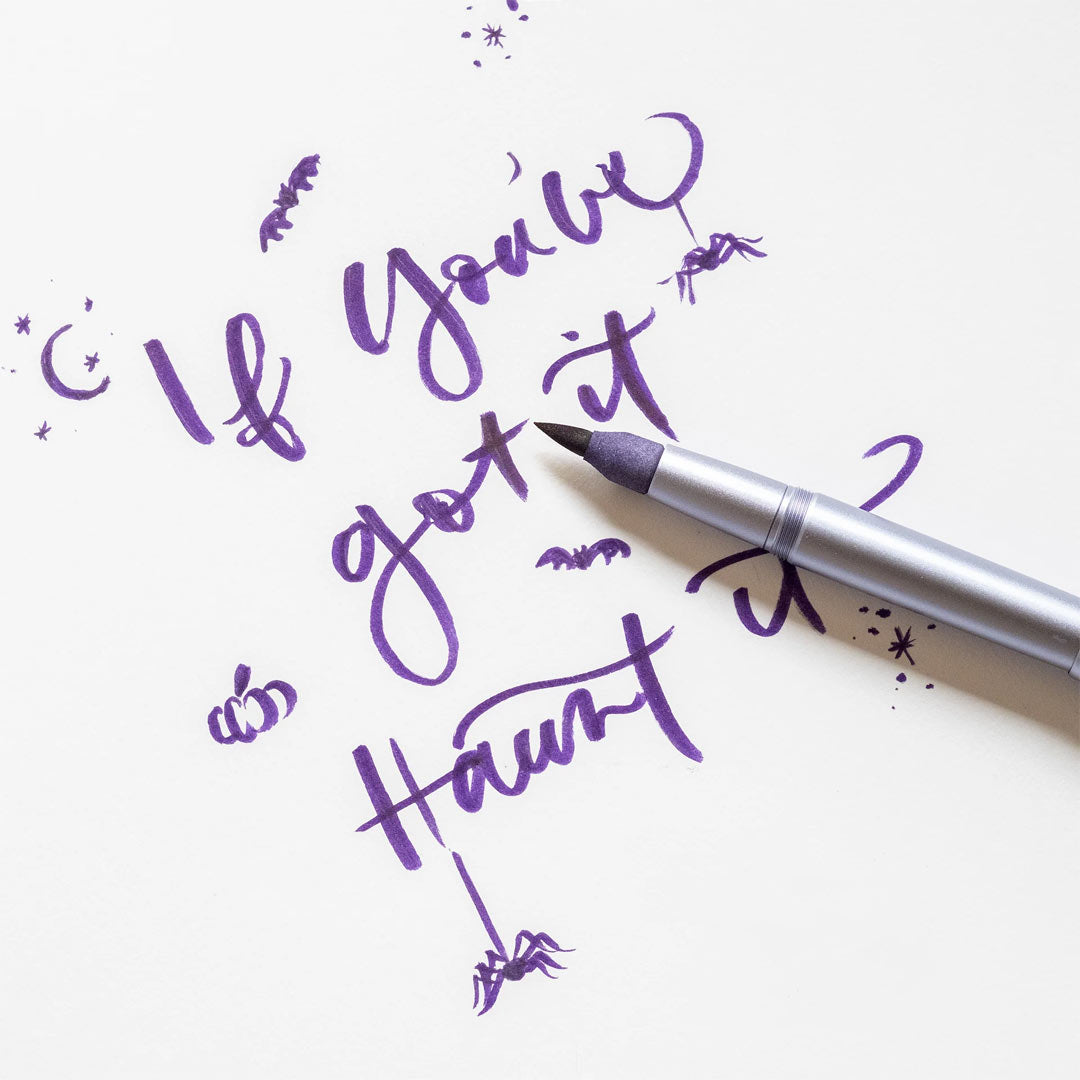 If you've
got it
Haunt it